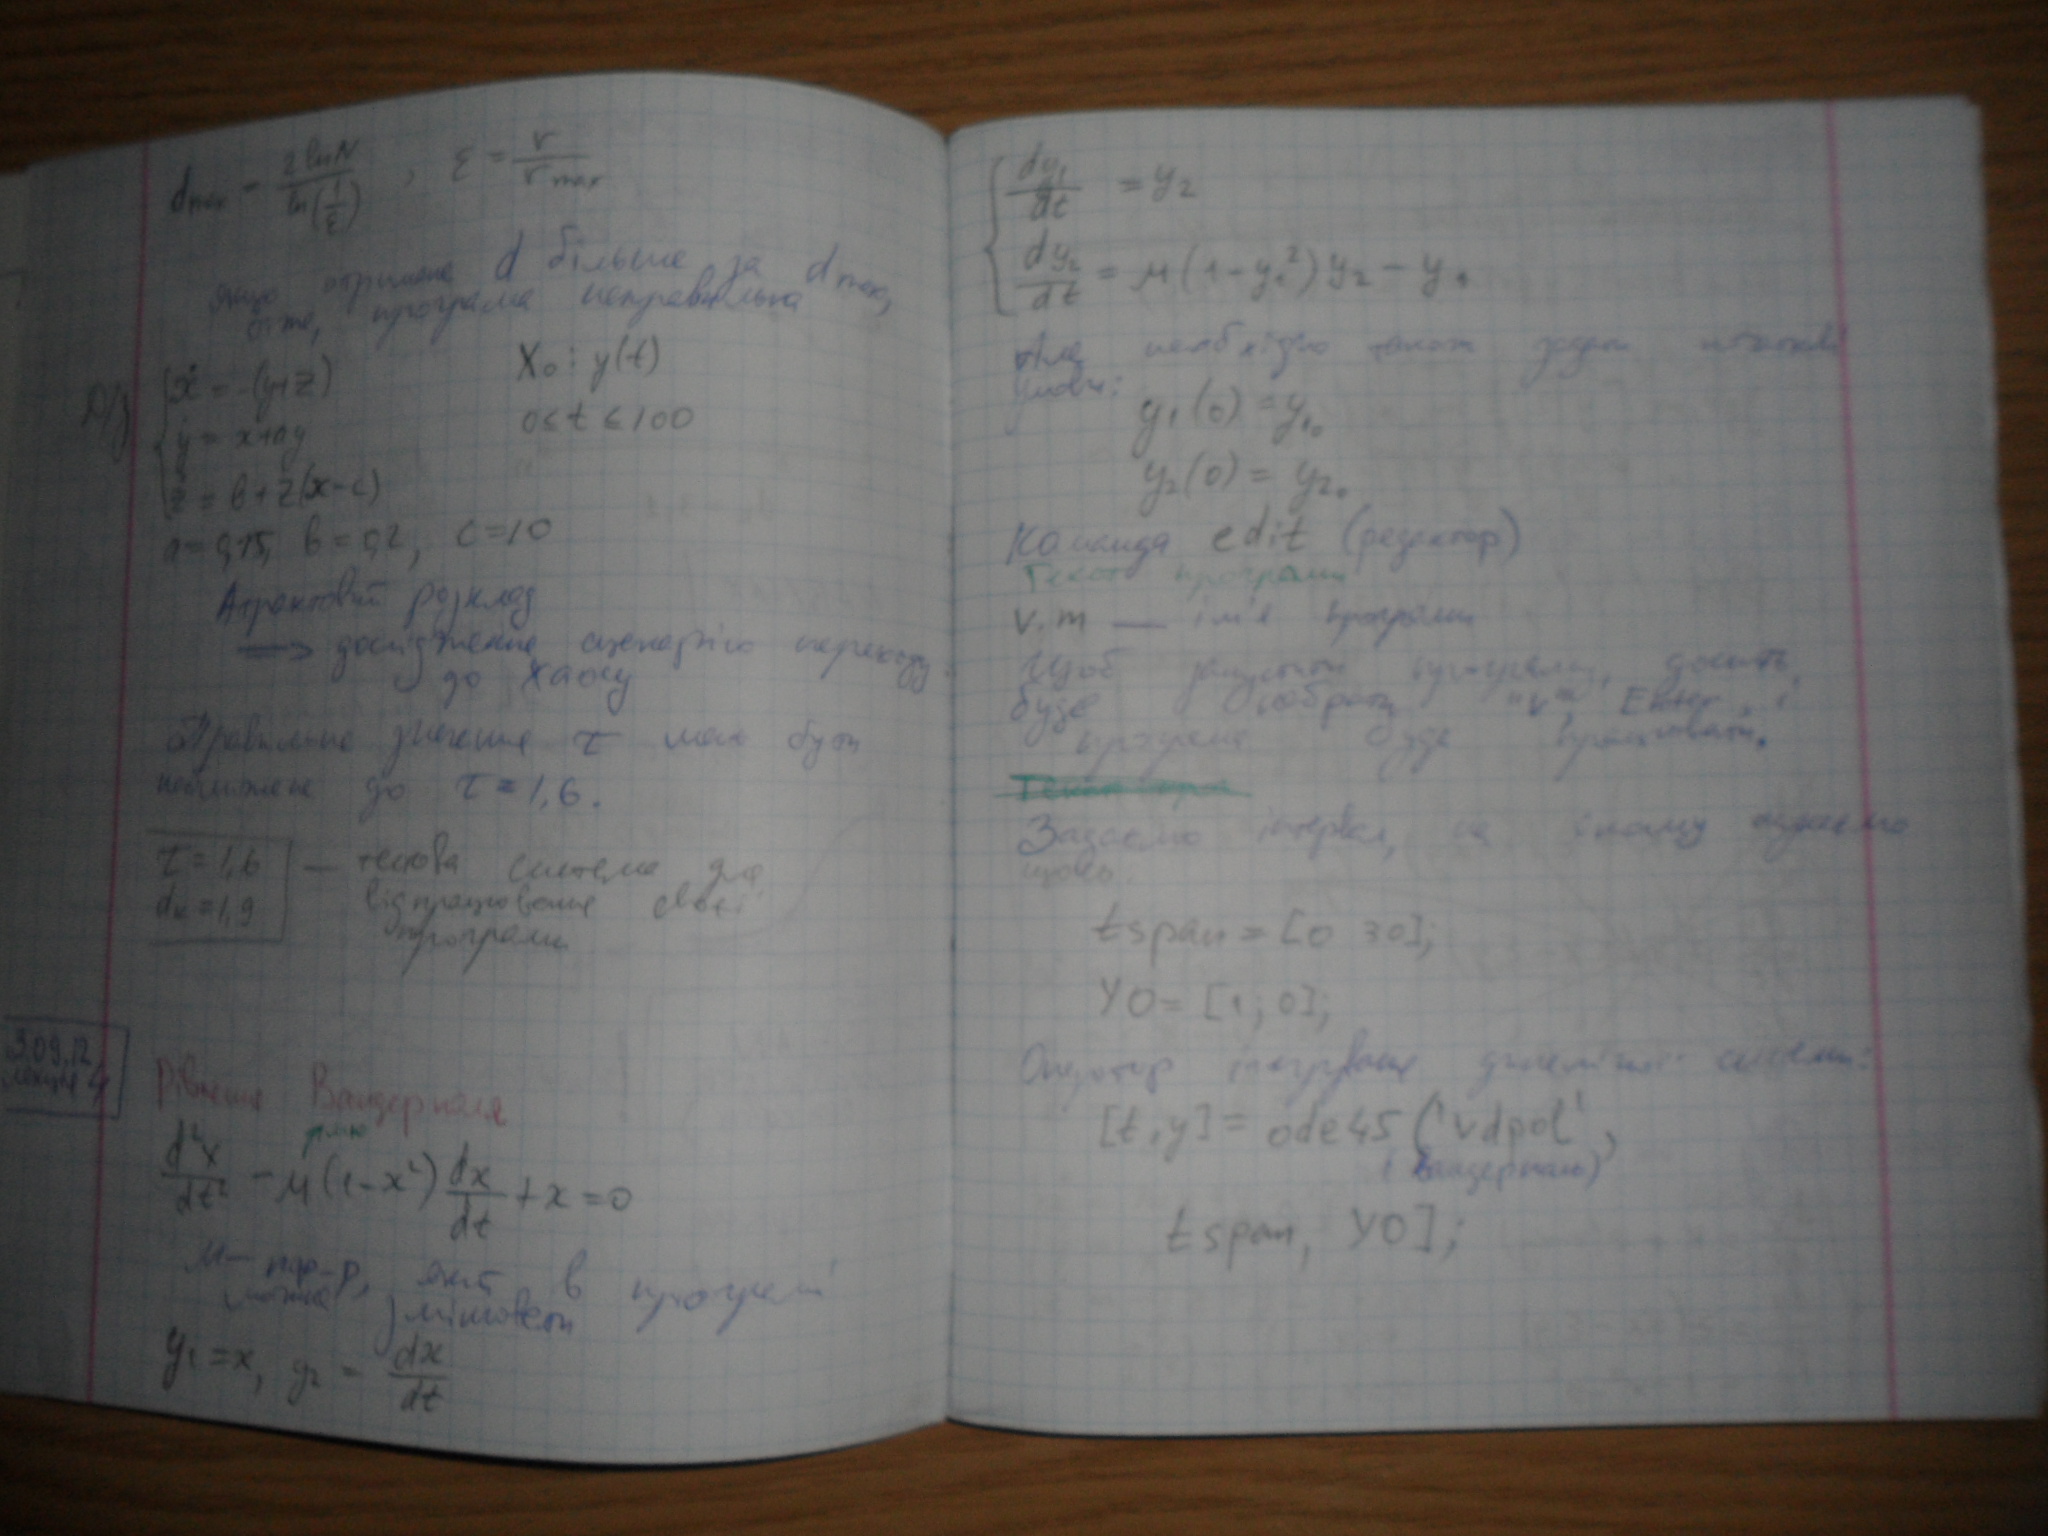 d max = 2 ln N / ln(1/ε) , ε = r / r max
якщо отримане d більше за d max,
отже, програма неправильна
Д/з
ẋ = -(y+z)
X₀ : y(t)
ẏ = x+ay
0 ≤ t ≤ 100
ż = b+z(x-c)
a=0,15, b=0,2, c=10
розклад
⟹ дослідження сценарію переходу
до хаосу
Правильне значення τ має бути
наближене до τ=1,6.
τ=1,6 — тестова система для
dк=1,9 відпрацювання своєї
програми
3.09.12
лекція 4
Рівняння Вандерполя
d²x/dt² - μ(1-x²) dx/dt + x = 0
мю
μ - пар-р, який в програмі
можна змінювати
y₁ = x, y₂ = dx/dt
dy₁/dt = y₂
dy₂/dt = μ(1-y₁²)y₂ - y₁
Але необхідно також задати початкові
умови:
y₁(0) = y₁₀
y₂(0) = y₂₀
Команда edit (редактор)
Текст програми
v.m — ім'я програми
Щоб запустити програму, досить
буде набрати "v" Enter, і
програма буде працювати.
Задаємо інтервал, на якому шукаємо
tspan = [0 30];
Y0 = [1; 0];
Оператор інтегрування динамічної системи:
[t,y] = ode45 ('vdpol',
(Вандерполь)
tspan, Y0];